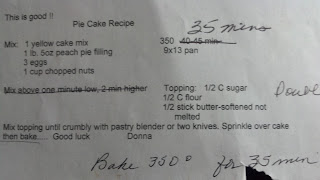 This is good !!
Pie Cake Recipe
35 mins
Mix: 1 yellow cake mix 350 40-45 min.
1 lb. 5oz peach pie filling 9x13 pan
3 eggs
1 cup chopped nuts
Mix above one minute low, 2 min higher Topping: 1/2 C sugar
Double
1/2 C flour
1/2 stick butter-softened not
melted
Mix topping until crumbly with pastry blender or two knives. Sprinkle over cake
then bake.... Good luck Donna
Bake 350° for 35 min